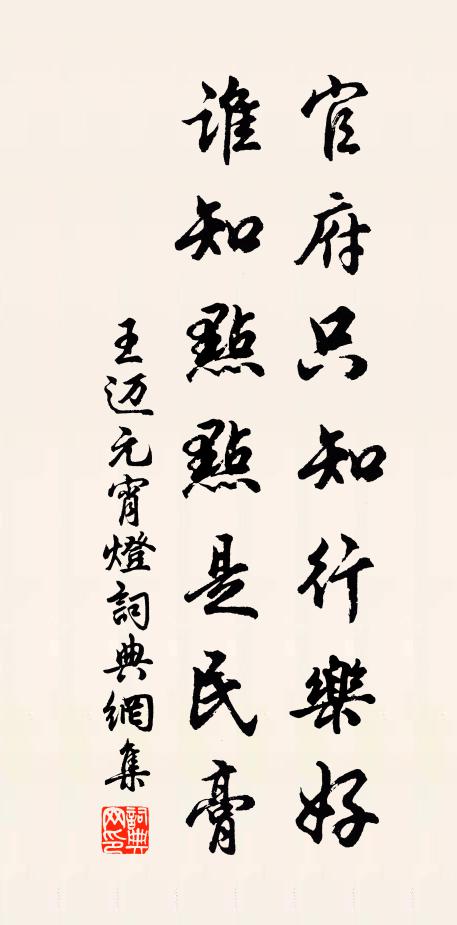 官府只知行樂好
誰知點點是民膏
王迈元宵燈詞典網集
詞典網印